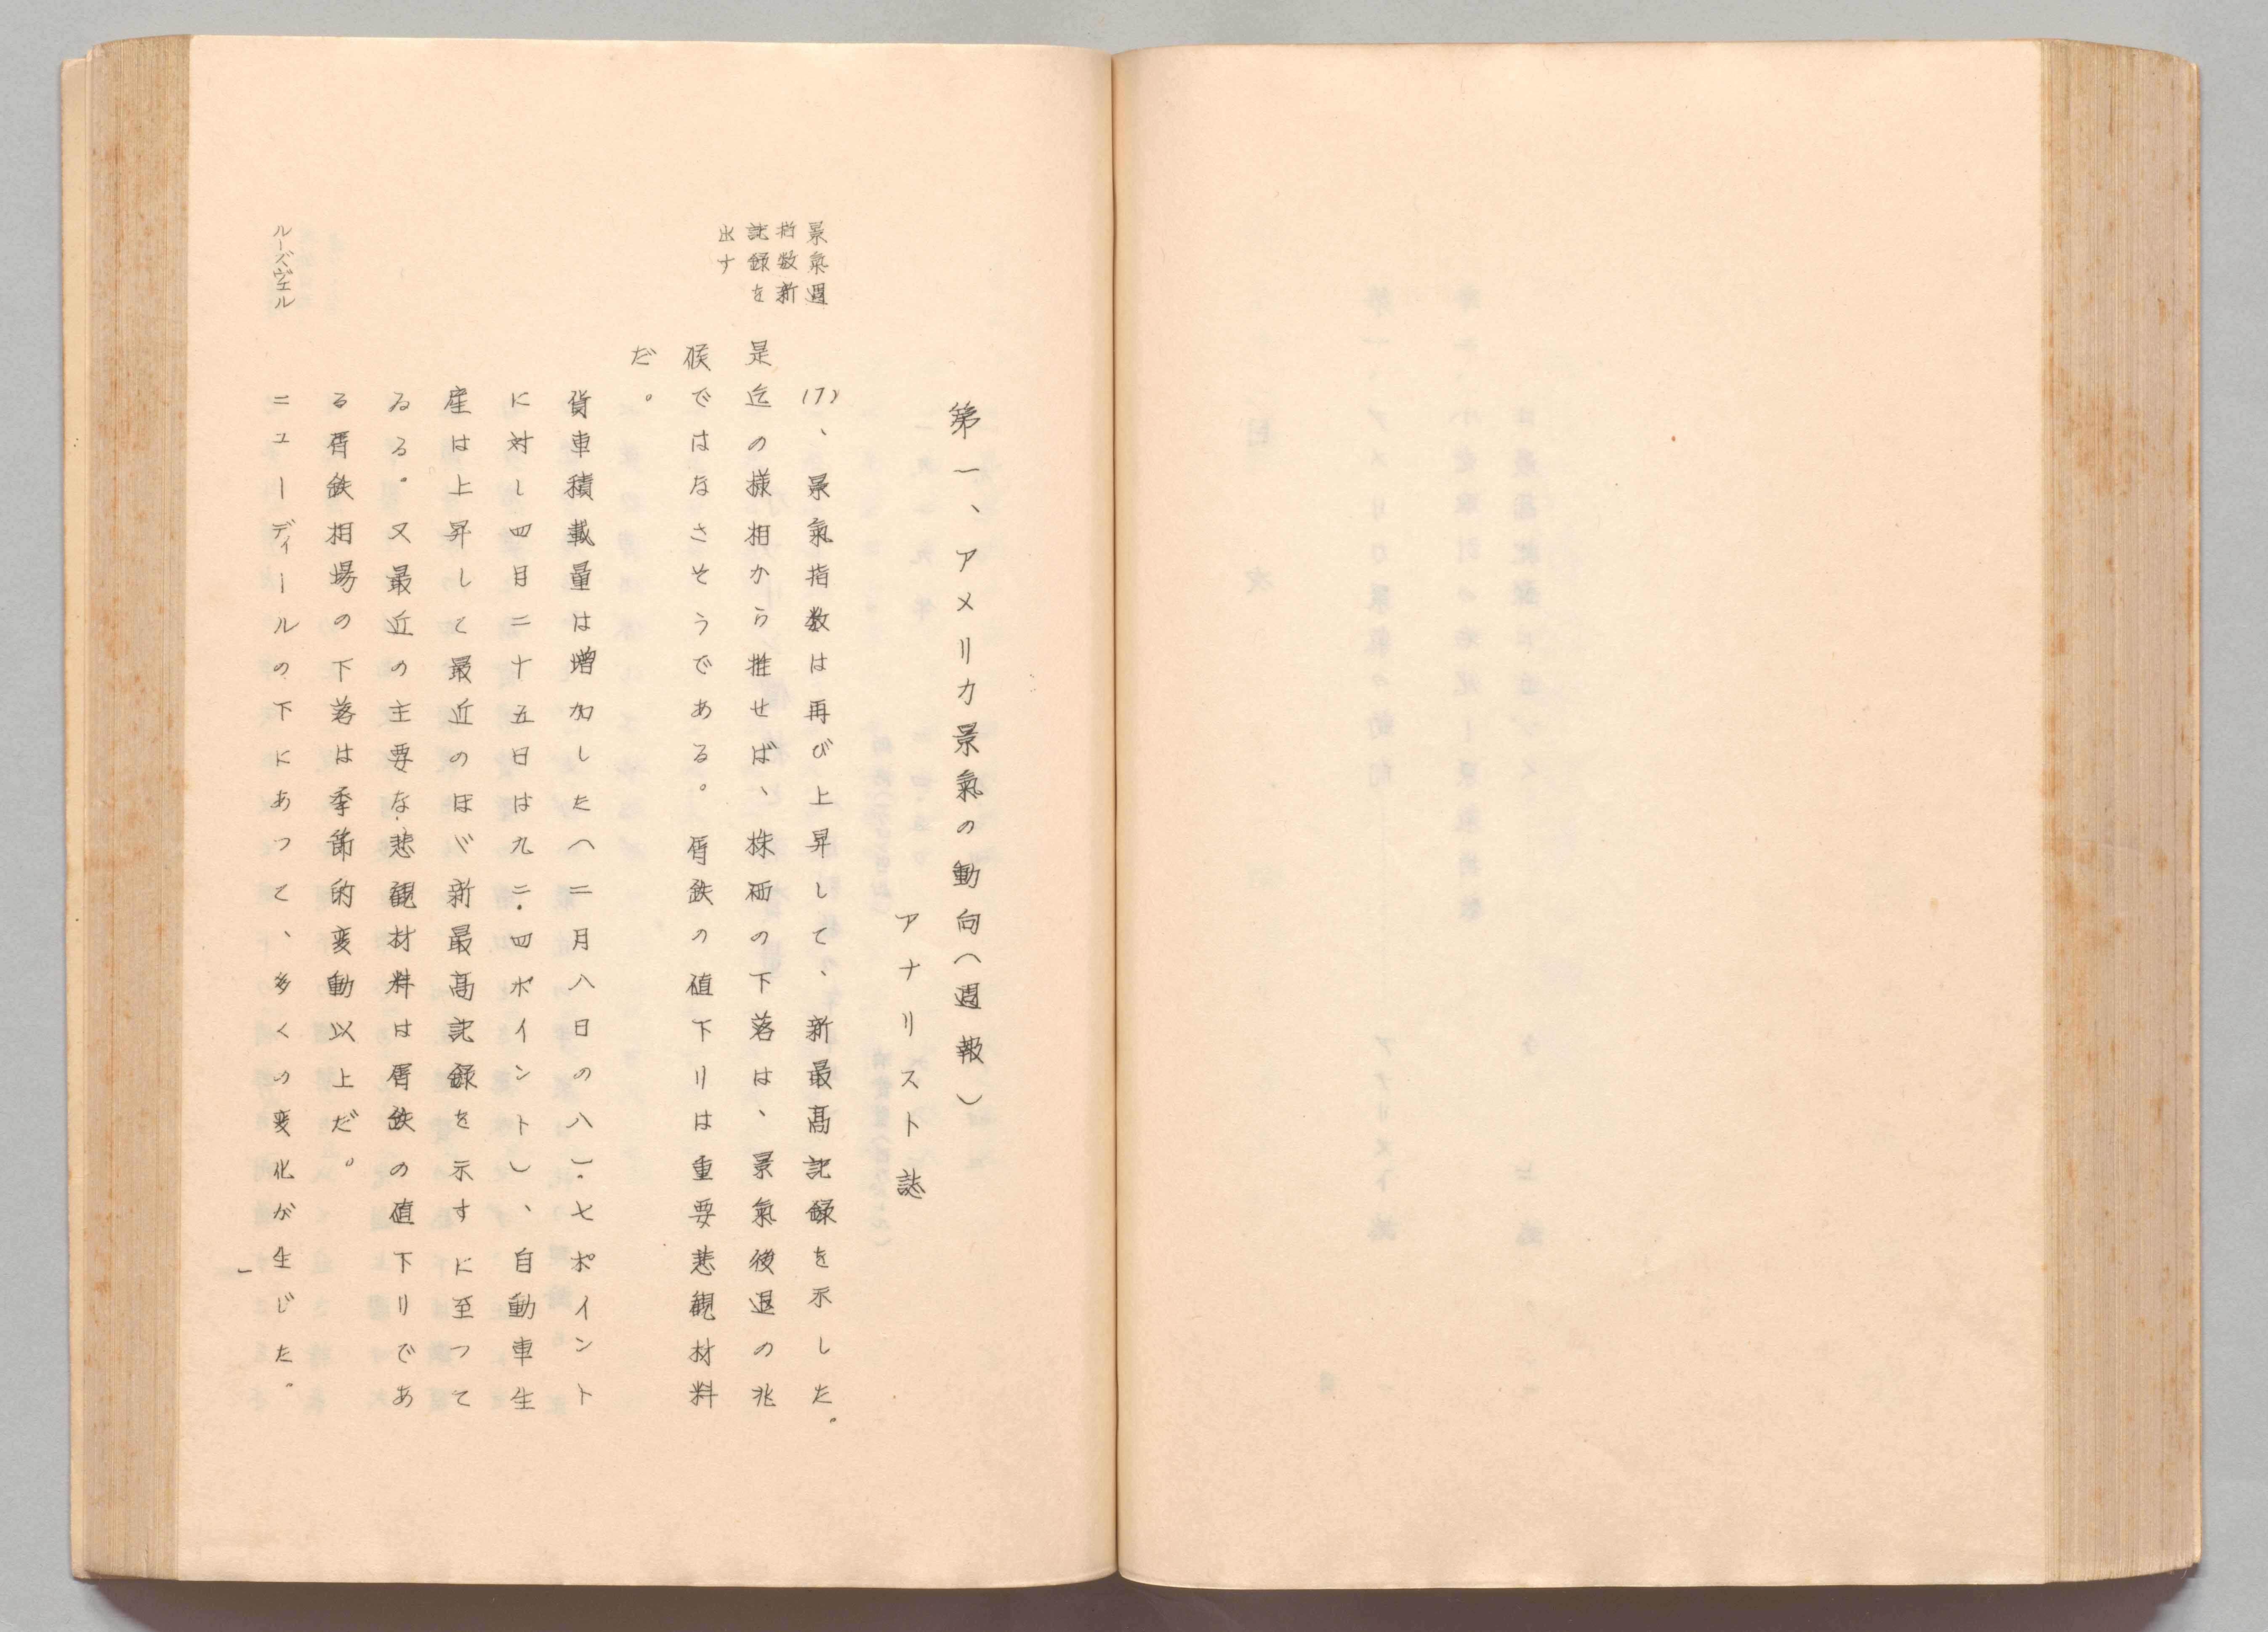 第一、アメリカ景氣の動向（週報）
アナリスト誌
景氣週
指数新
記録を
出す
(7)、景氣指数は再び上昇して、新最高記録を示した。
是迄の様相から推せば、株価の下落は、景氣後退の兆
候ではなさそうである。屑鉄の値下りは重要悲観材料
だ。
貨車積載量は増加した（二月八日の八一・七ポイント
に対し四月二十五日は九二・四ポイント）、自動車生
産は上昇して最近のほゞ新最高記録を示すに至つて
ゐる。又最近の主要な悲観材料は屑鉄の値下りであ
る屑鉄相場の下落は季節的変動以上だ。
ルーズヴェル
ニューディールの下にあつて、多くの変化が生じた。
一